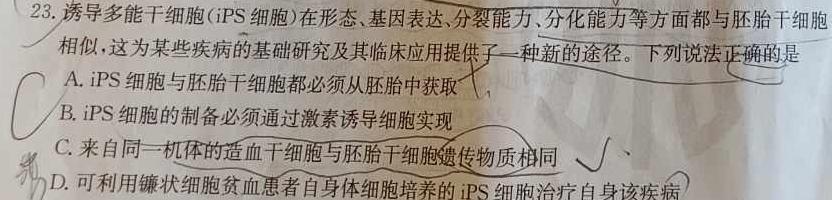 23. 诱导多能干细胞(iPS 细胞)在形态、基因表达、分裂能力、分化能力等方面都与胚胎干细胞
相似,这为某些疾病的基础研究及其临床应用提供了一种新的途径。下列说法正确的是
A. iPS 细胞与胚胎干细胞都必须从胚胎中获取
B. iPS 细胞的制备必须通过激素诱导细胞实现
C. 来自同一机体的造血干细胞与胚胎干细胞遗传物质相同
D. 可利用镰状细胞贫血患者自身体细胞培养的 iPS 细胞治疗自身该疾病